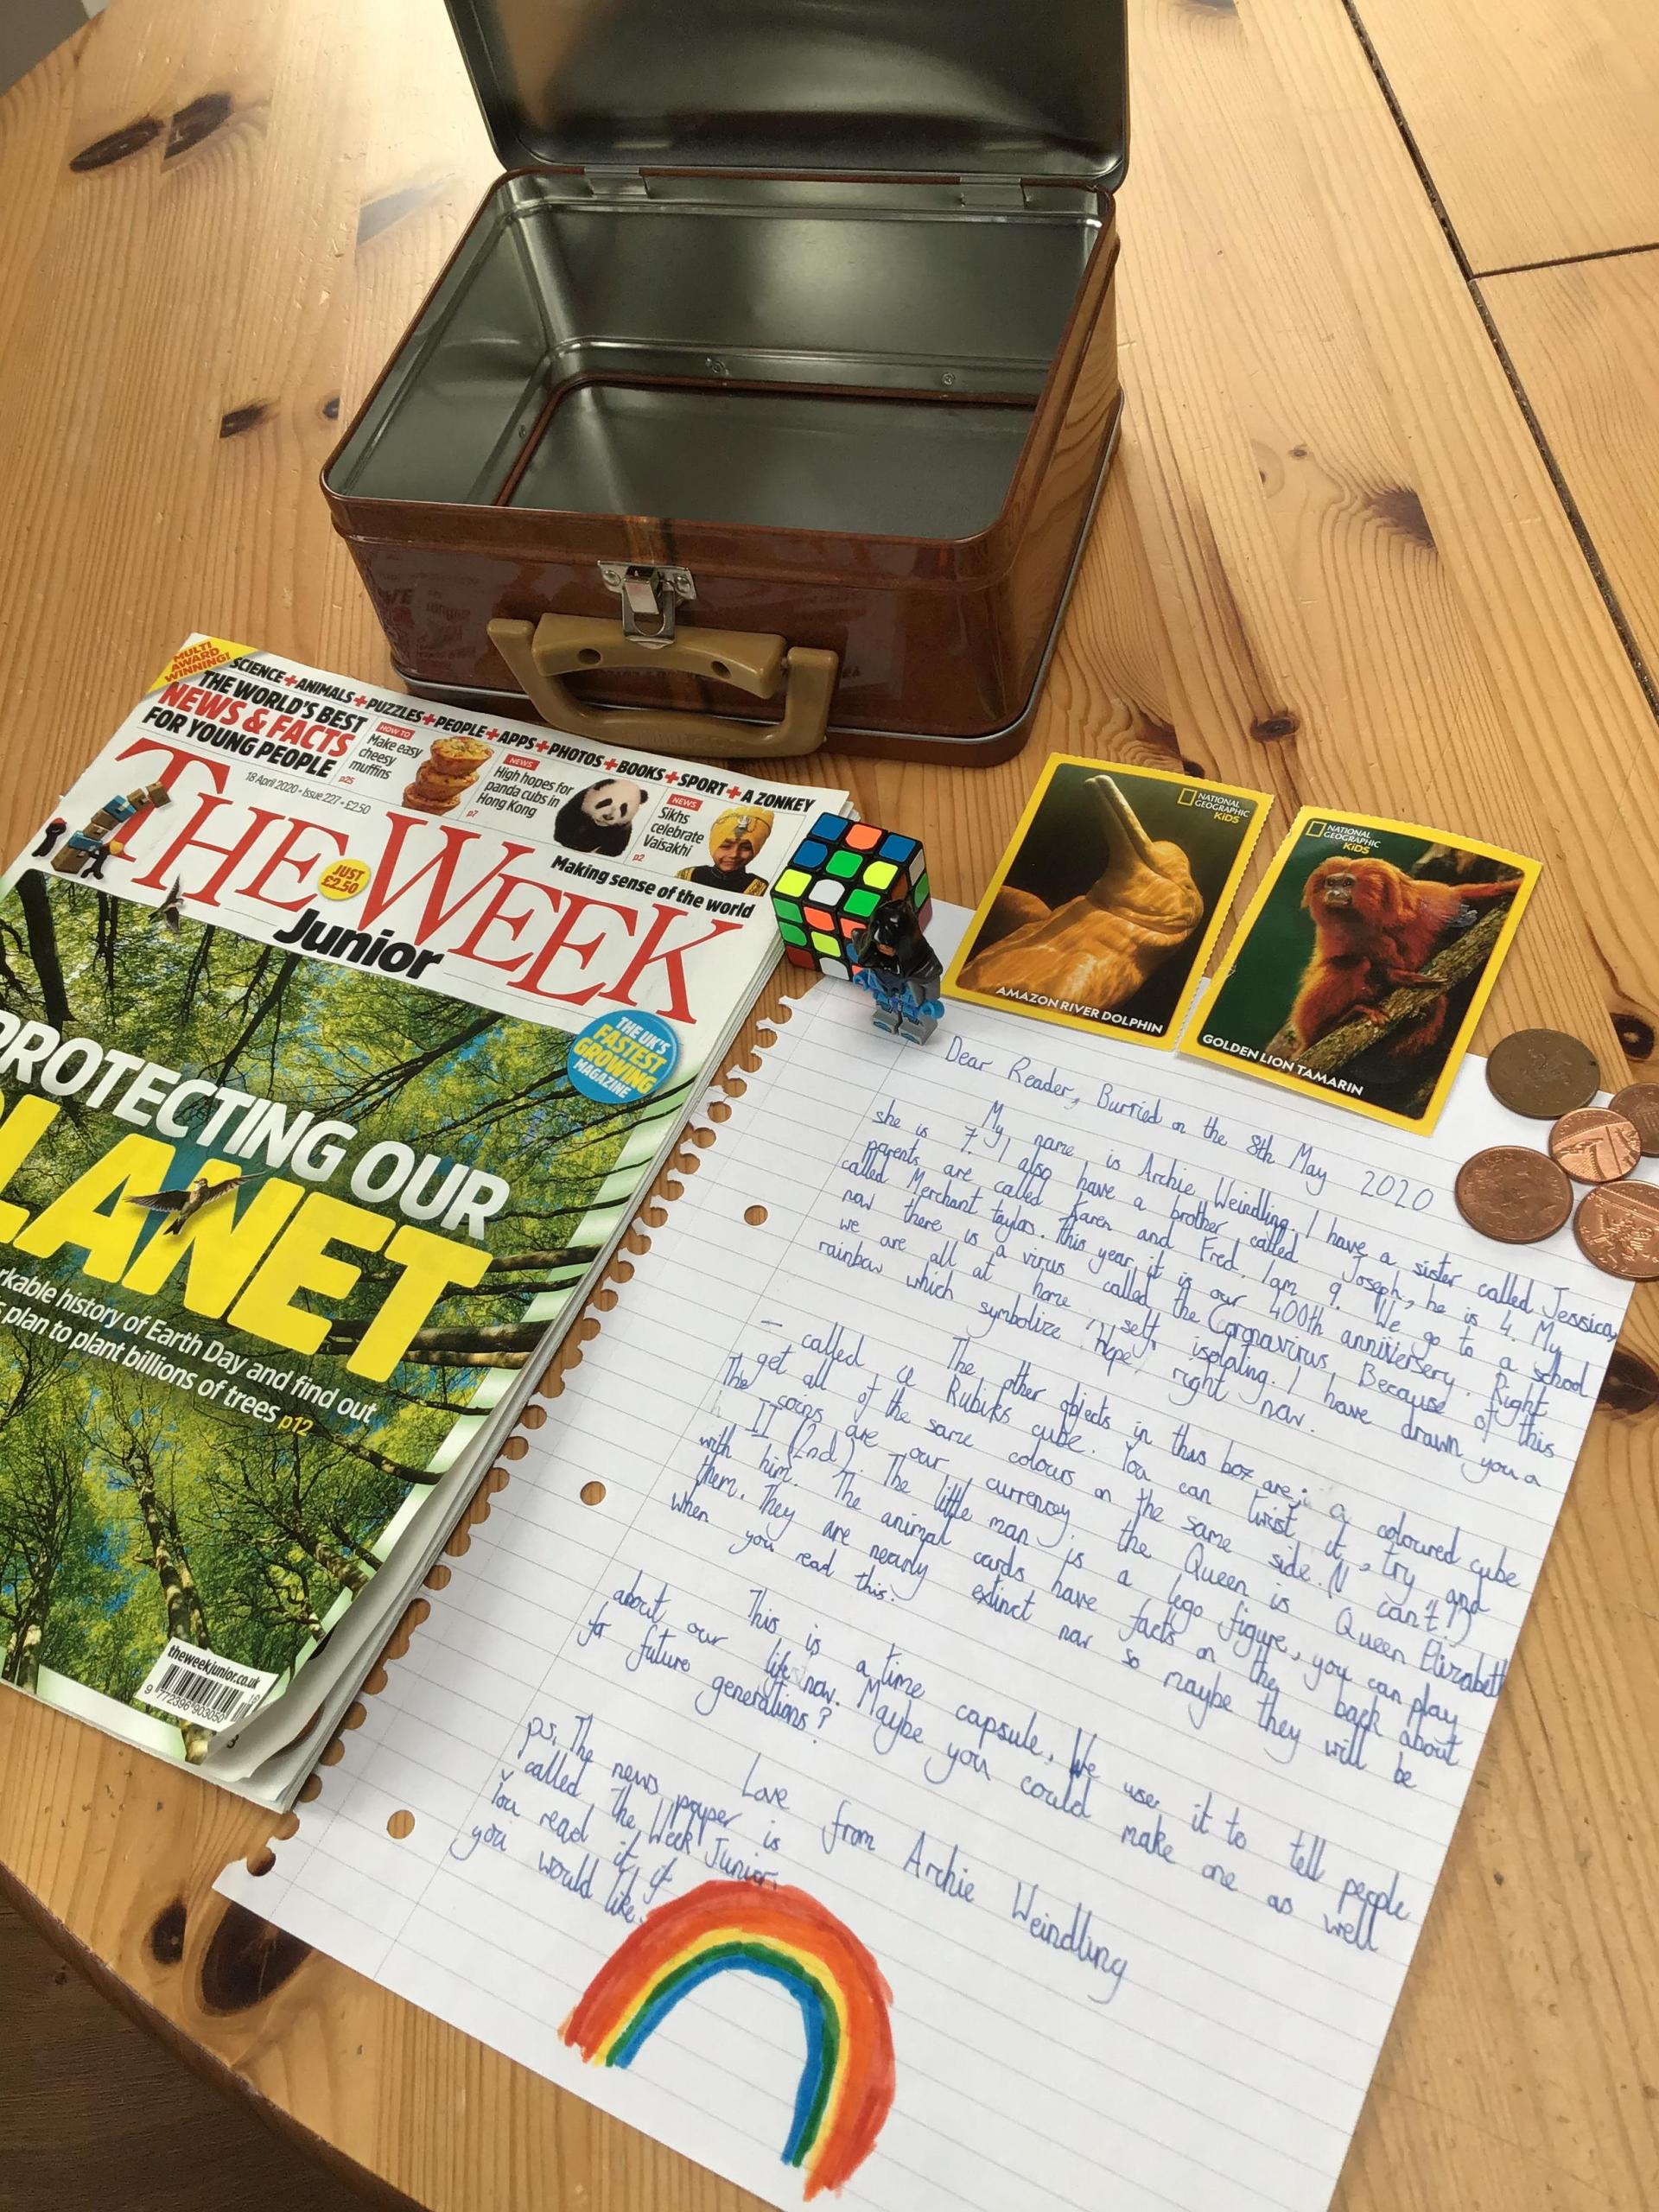 MULTI
AWARD
WINNING!
SCIENCE+ANIMALS+PUZZLES+PEOPLE+APPS+PHOTOS+BOOKS+SPORT+A ZONKEY
THE WORLD'S BEST
NEWS & FACTS
FOR YOUNG PEOPLE
HOW TO
Make easy
cheesy
muffins
p25
NEWS
High hopes for
panda cubs in
Hong Kong
p7
NEWS
Sikhs
celebrate
Vaisakhi
p2
18 April 2020 • Issue 227 • £2.50
THE WEEK
Junior
JUST
£2.50
Making sense of the world
THE UK'S
FASTEST
GROWING
MAGAZINE
PROTECTING OUR
PLANET
rkable history of Earth Day and find out
s plan to plant billions of trees p12
theweekjunior.co.uk
9 772396 903050
NATIONAL
GEOGRAPHIC
KiDS
AMAZON RIVER DOLPHIN
NATIONAL
GEOGRAPHIC
KiDS
GOLDEN LION TAMARIN
Dear Reader, Burried on the 8th May 2020
My name is Archie Weindling. I have a sister called Jessica,
she is 7. I also have a brother called Joseph, he is 4. My
parents are called Karen and Fred. I am 9. We go to a school
called Merchant taylors. This year it is our 400th anniversery. Right
now there is a virus called the Coronavirus. Because of this
we are all at home self isolating. I have drawn you a
rainbow which symbolize 'hope' right now.
The other objects in thus box are: a coloured cube
- called a Rubiks cube. You can twist it, try and
get all of the same colours on the same side. (I can't!)
The coins are our currency, the Queen is Queen Elizabeth
II (2nd). The little man is a lego figure, you can play
with him. The animal cards have facts on the back about
them. They are nearly extinct now so maybe they will be
when you read this.
This is a time capsule. We use it to tell people
about our life now. Maybe you could make one as well
for future generations?
Love from Archie Weindling
ps. The news payper is
called The Week Junior.
You read it if
you would like.